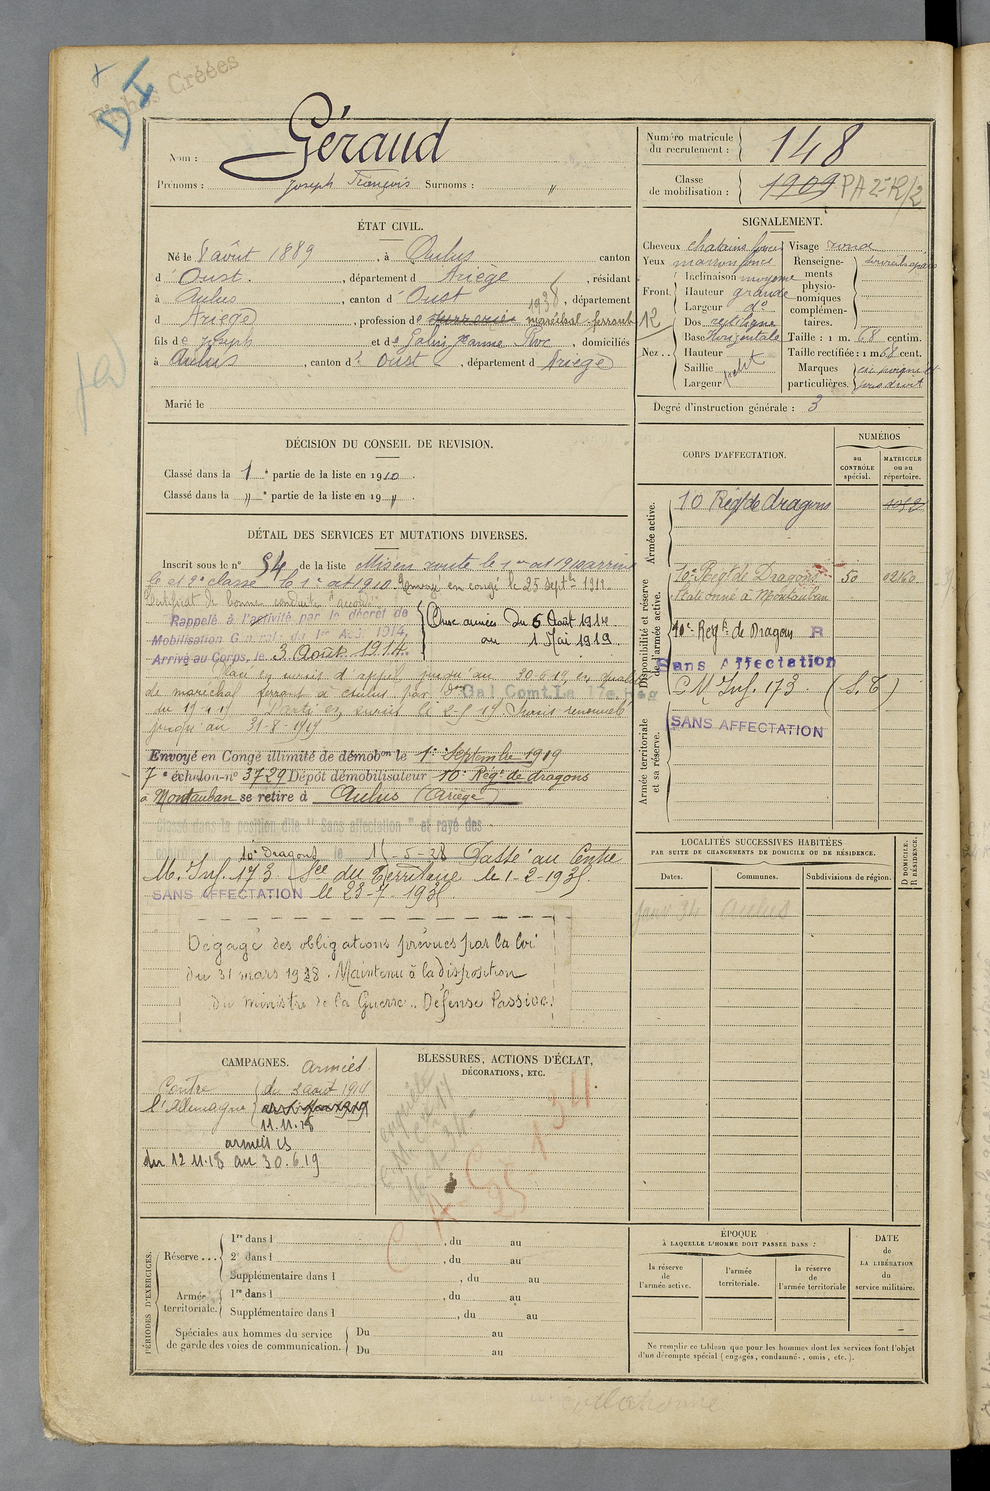 Fiches Créées
D I
Nom : Géraud
Prénoms : Joseph François Surnoms : "
Numéro matricule du recrutement : 148
Classe de mobilisation : 1909 PA 2e R/2
ÉTAT CIVIL.
Né le 8 août 1889, à Aulus canton
d' Oust, département d Ariège, résidant
à Aulus, canton d' Oust 1938, département
d Ariège, profession de maréchal-ferrant
fils de Joseph et de Galin Jeanne Roc, domiciliés
à Aulus, canton d' Oust, département d Ariège
Marié le
SIGNALEMENT.
Cheveux chatains foncé Visage rond
Yeux marron foncé
Front. Inclinaison moyenne
Hauteur grande
Largeur do
Nez .. Dos rectiligne
Base Horizontale
Hauteur
Saillie petit
Largeur
Renseignements physionomiques complémentaires.
Taille : 1 m. 68 centim.
Taille rectifiée : 1 m 68 cent.
Marques particulières.
12
Degré d'instruction générale : 3
DÉCISION DU CONSEIL DE REVISION.
Classé dans la 1e partie de la liste en 1910.
Classé dans la " e partie de la liste en 19 ".
CORPS D'AFFECTATION.
NUMÉROS
au CONTRÔLE spécial.
MATRICULE ou au répertoire.
Armée active.
10 Régt de dragons
Disponibilité et réserve de l'armée active.
10e Régt de Dragons 50 02160
Stationné à Montauban
10e Regt de Dragons R
Sans Affectation
C M Inf. 173 (S.T)
Armée territoriale et sa réserve.
SANS AFFECTATION
DÉTAIL DES SERVICES ET MUTATIONS DIVERSES.
Inscrit sous le n° 54 de la liste Mis en route le 1er oct 1910 arrivé
le et 2e classe le 1e oct 1910. Envoyé en congé le 25 septbre 1912.
Certificat de bonne conduite "accordé"
Rappelé à l'activité par le décret de
Mobilisation Générale du 1er Août 1914,
Arrivé au Corps, le 3 Août 1914.
Aux armées du 5 Août 1914
au 1 Mai 1919
Placé en sursis d'appel jusqu'au 30-6-19 en qualité
de maréchal ferrant à Aulus par Don Gal Comt La 17e Rég
du 19-4-19 Parti en sursis le 2-5-19 Sursis renouvelé
jusqu'au 31-8-1919
Envoyé en Congé illimité de démobon le 1er Septembre 1919
7e échelon n° 3729 Dépôt démobilisateur 10e Régt de dragons
à Montauban se retire à Aulus (Ariège)
Classé dans la position dite "Sans affectation" et rayé des
10e Dragons le 15-5-28 Passé au Centre
M. Inf. 173 Son du Territoire le 1-2-193
SANS AFFECTATION le 23-7-193
Dégagé des obligations prévues par la loi
du 31 mars 1928. Maintenu à la disposition
du ministre de la Guerre.. Défense Passive.
LOCALITÉS SUCCESSIVES HABITÉES
PAR SUITE DE CHANGEMENTS DE DOMICILE OU DE RÉSIDENCE.
Dates. Communes. Subdivisions de région. D DOMICILE. R RÉSIDENCE.
Janv 34 Aulus
CAMPAGNES. Armées
Contre l'Allemagne du 3 aout 1914
11.11.18
armeis
du 12 11.18 au 30.6.19
BLESSURES, ACTIONS D'ÉCLAT,
DÉCORATIONS, ETC.
PÉRIODES D'EXERCICES.
Réserve ... 1re dans l , du au
2e dans l , du au
Supplémentaire dans l , du au
Armée territoriale. 1re dans l , du au
Supplémentaire dans l , du au
Spéciales aux hommes du service de garde des voies de communication. Du au
Du au
ÉPOQUE
À LAQUELLE L'HOMME DOIT PASSER DANS :
la réserve de l'armée active.
l'armée territoriale.
la réserve de l'armée territoriale
DATE DE LA LIBÉRATION du service militaire.
Ne remplir ce tableau que pour les hommes dont les services font l'objet
d'un décompte spécial (engagés, condamnés, omis, etc.).